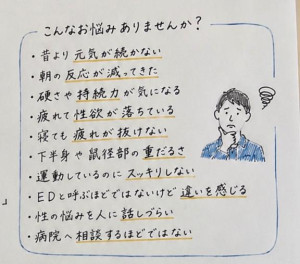 こんなお悩みありませんか？
・昔より元気が続かない
・朝の反応が減ってきた
・硬さや持続力が気になる
・疲れて性欲が落ちている
・寝ても疲れが抜けない
・下半身や鼠径部の重だるさ
・運動しているのにスッキリしない
・EDと呼ぶほどではないけど違いを感じる
・性の悩みを人に話しづらい
・病院へ相談するほどではない
」